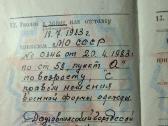 12. Уволен в запас или отставку
18.4.1983 г.
приказом МО СССР
№ 0346 от 20.4.1983 г.
по ст. 58, пункт "а"
по возрасту с
правом ношения
военной формы одежды.